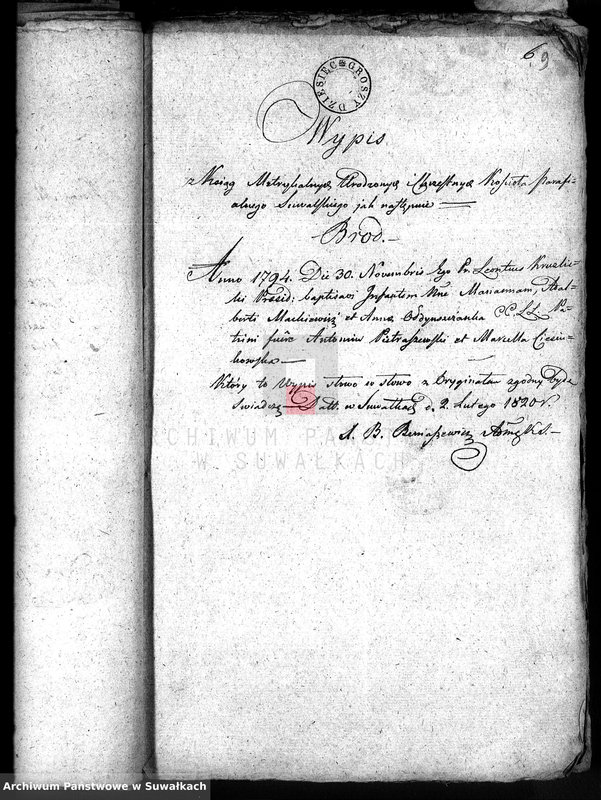 69
DZIESIĘĆ GROSZY
Wypis
z Xsiąg Metrykalnych Urodzonych i Chrzestnych Kościoła Parafi-
alnego Suwalskiego jak następuie
Brod.
Anno 1794. Die 30. Novembris Ego Pr. Leontius
baptisavi Infantem Nne Mariannam, Adal-
berti Mackiewicz et Anna CC. LL. Pa-
trini fuere Antonius Pietraszewski et Marcella Ciecin-
kowska
Który to Wypis słowo w słowo z Oryginałem zgodny bydź
świadczę Datt. w Suwałkach d. 2. Lutego 1820 r.
ARCHIWUM PAŃSTWOWE
W SUWAŁKACH
Archiwum Państwowe w Suwałkach